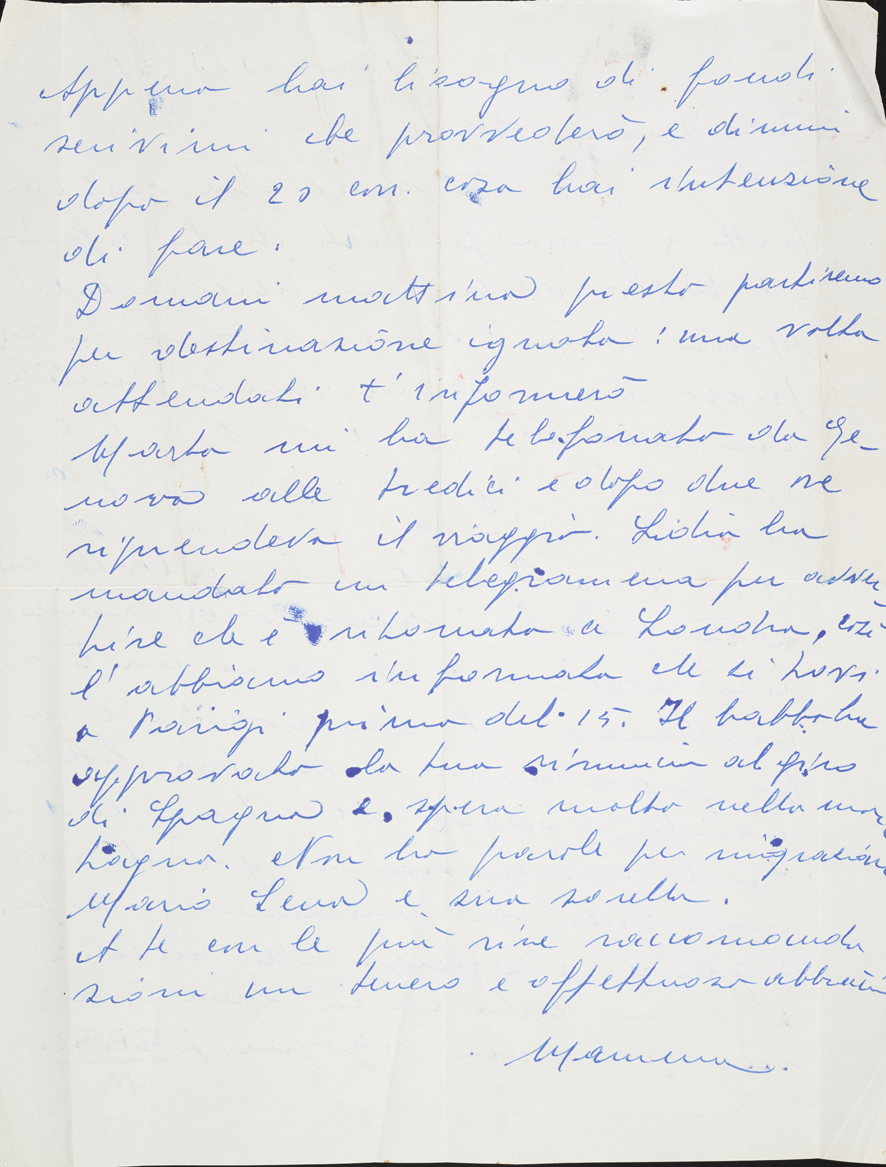 Appena hai bisogno di fondi
scrivimi che provvederò, e dimmi
dopo il 20 corr. cosa hai intenzione
di fare.
Domani mattina presto partiremo
per destinazione ignota: una volta
attendati t'informerò
Marta mi ha telefonato da Ge-
nova alle tredici e dopo due ore
riprendeva il viaggio. Lidia ha
mandato un telegramma per avver-
tire che è ritornata a Londra, così
l'abbiamo informata che ti trovi
a Parigi prima del 15. Il babbo ha
approvato la tua rinuncia al giro
di Spagna e spera molto nella mon
tagna. Non ho parole per ringraziare
Mario Lena e sua sorella.
A te con le più vive raccomanda
zioni un tenero e affettuoso abbraccio
Mamma...